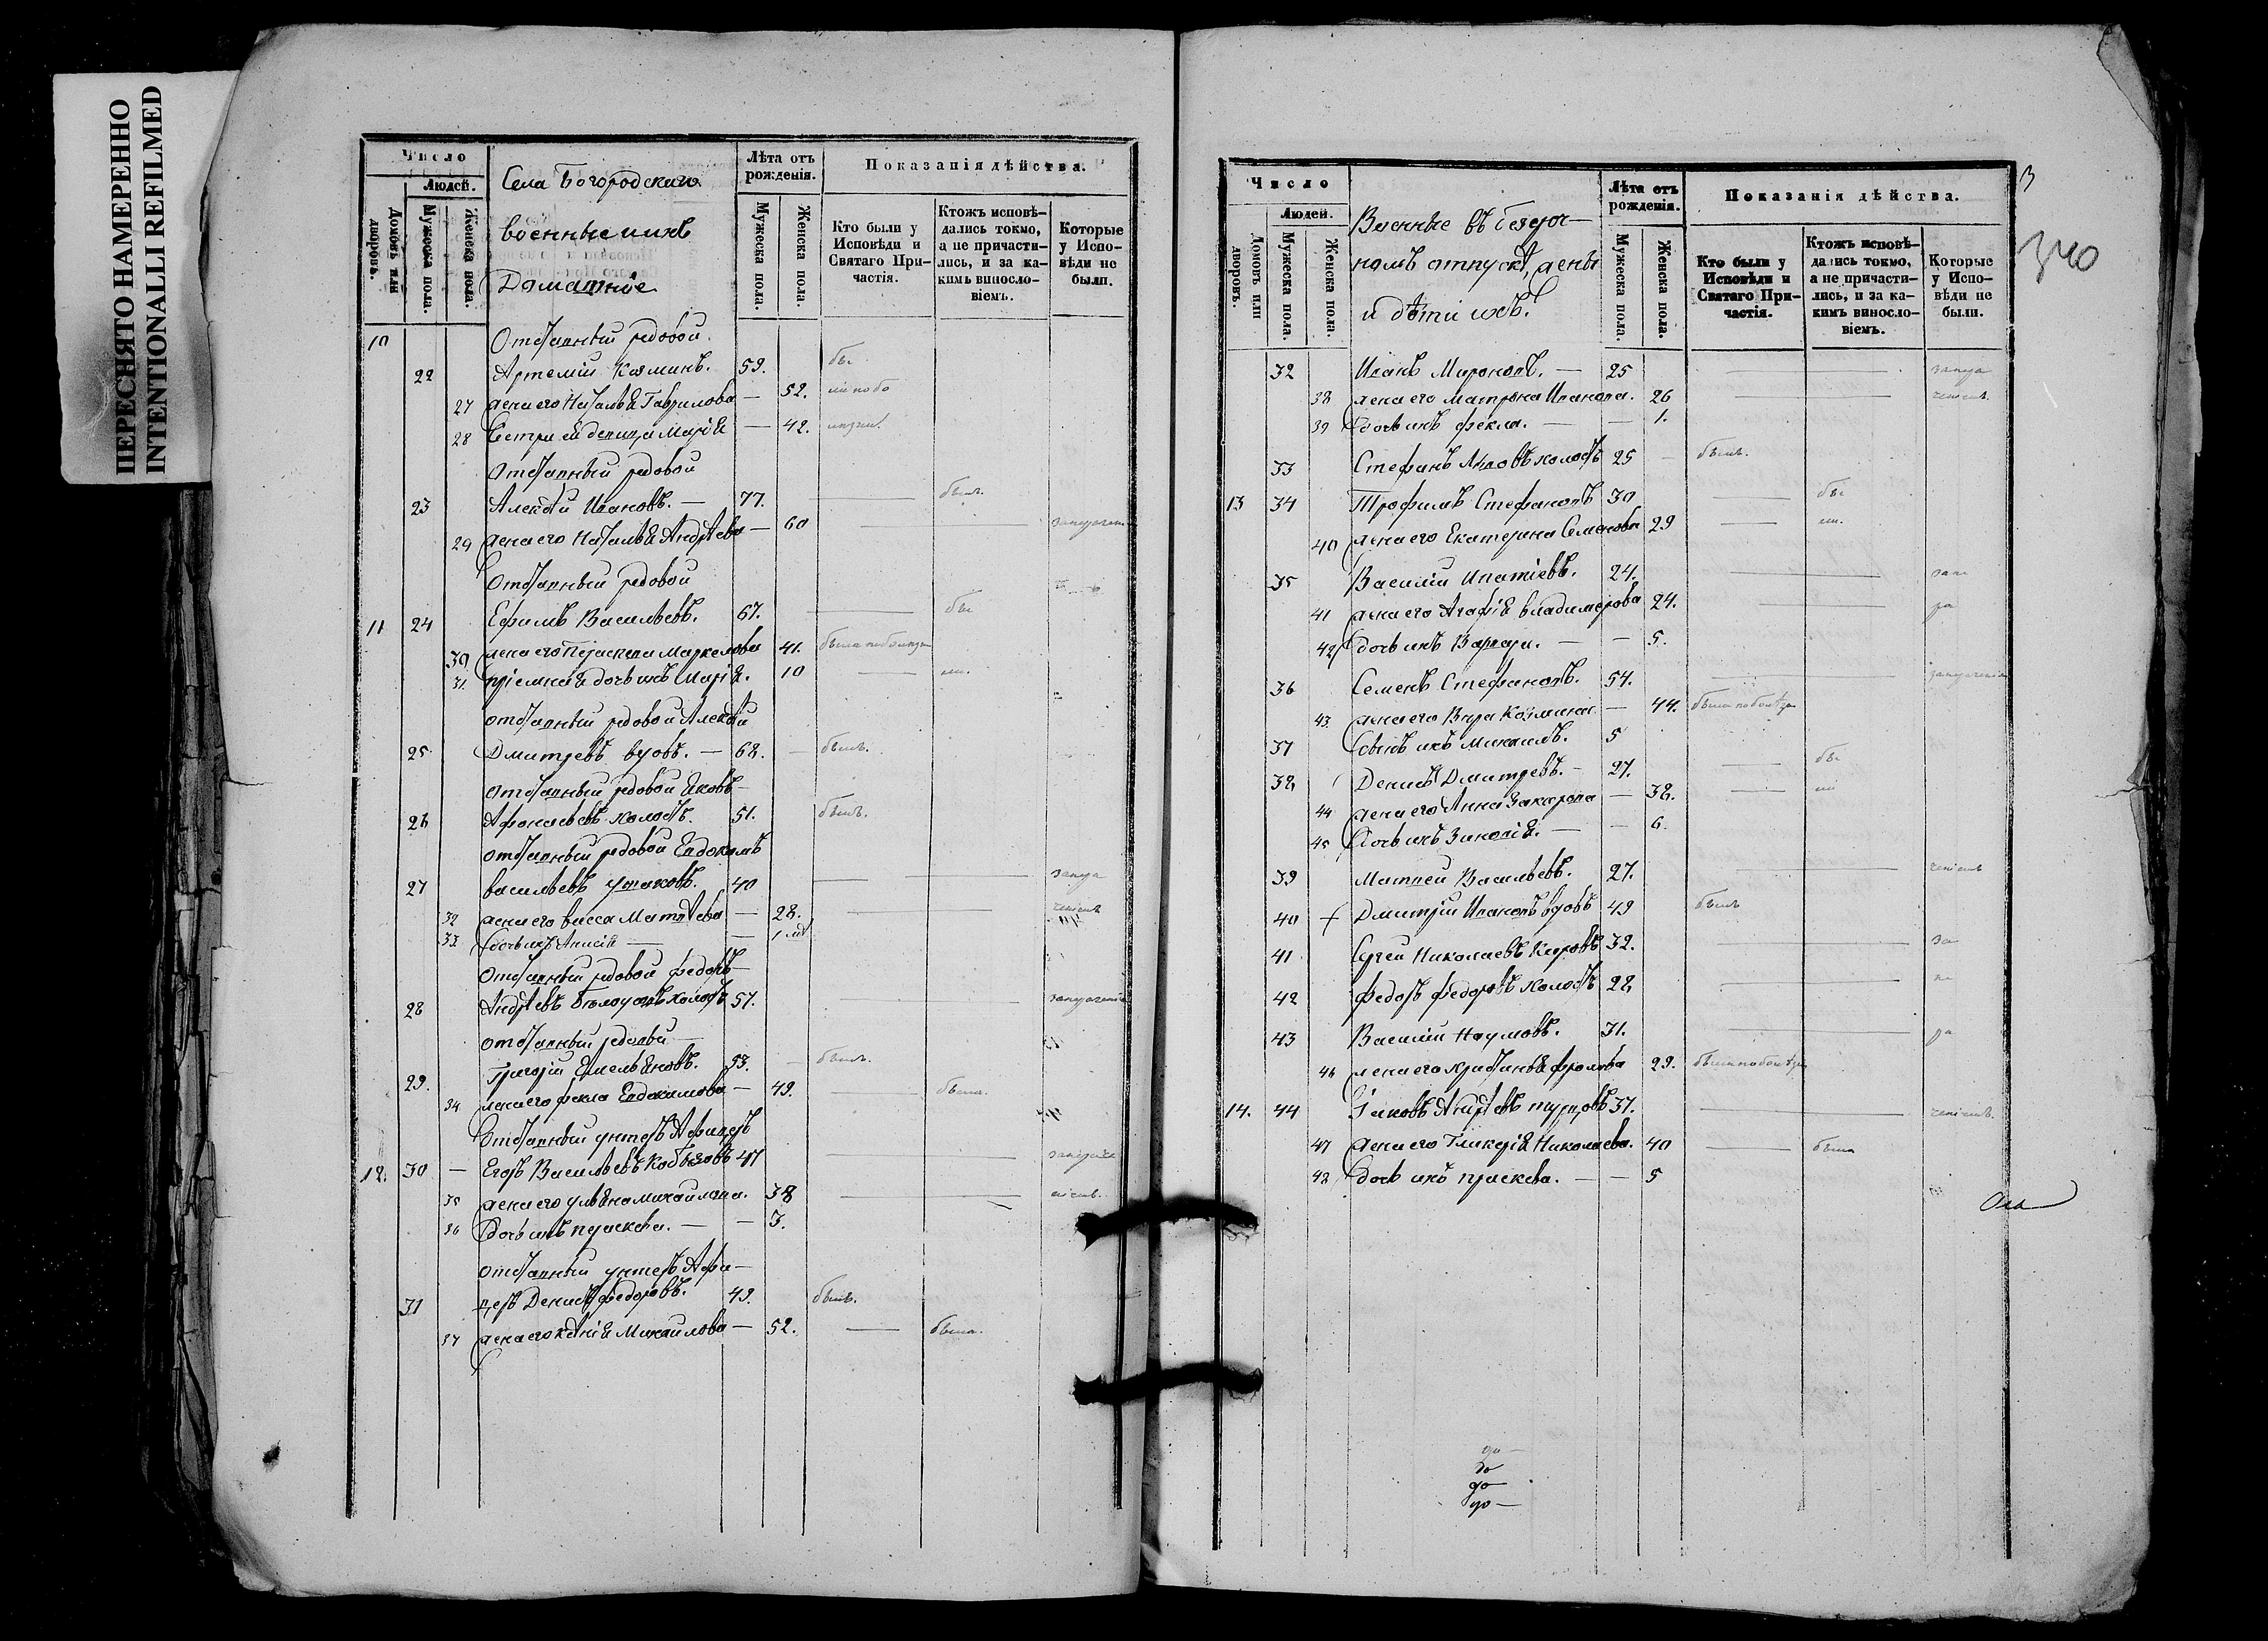 ПЕРЕСНЯТО НАМЕРЕННО
INTENTIONALLI REFILMED
Число
Людей.
Домовъ или дворовъ.
Мужеска пола.
Женска пола.
Села Богородскаго
военные ихъ
Домашніе
Лѣта отъ рожденія.
Мужеска пола.
Женска пола.
Показанія дѣйства.
Кто были у Исповѣди и Святаго Причастія.
Ктожъ исповѣдались токмо, а не причастились, и за какимъ винословіемъ.
Которые у Исповѣди не были.
10 Отставный рядовой
22 Артемій Козминъ. 59. бы
27 жена его Наталья Гаврилова — 52. ли по бо
28 Сестра ей девица Марія — 42.
Отставный рядовой
23 Алексѣй Ивановъ. — 77. — былъ.
29 жена его Наталья Андрѣева — 60 —
Отставный рядовой
11 24 Ефимъ Васильевъ. 67. — бы
30 жена его Праскева Маркелова 41. была по болѣзни
31 пріемная дочь ихъ Марія. 10 — ли.
отставный рядовой Алексѣй
25 Дмитріевъ вдовъ. — 68. — былъ.
отставный рядовой Яковъ
26 Афонасьевъ холостъ. 51. былъ.
отставный рядовой Евдокимъ
27 Васильевъ Ушаковъ. 40 — запущ
32 жена его Васса Матвѣева — 28. — ченіемъ
33 дочь ихъ Анисія — — 1
Отставный рядовой Федоръ
28 Андрѣевъ холостъ 57. — запущеніе
отставный рядовой —
29. Григорій Емельяновъ. 53. — былъ.
34 жена его Фекла Евдокимова — 49. — была.
Отставный унтеръ Афицеръ
12. 30 — Егоръ Васильевъ 47 —
35 жена его Ульяна Михайлова. 38 —
36 дочь ихъ Праскева. — — 3.
отставный унтеръ Афи-
31 церъ Денисъ Федоровъ. 49. былъ.
37 жена его Ксѣнія Михайлова — 52. — была.
3
340
Число
Людей.
Домовъ или дворовъ.
Мужеска пола.
Женска пола.
Военные въ безсроч-
номъ отпускѣ, жены
и дѣти ихъ.
Лѣта отъ рожденія.
Мужеска пола.
Женска пола.
Показанія дѣйства.
Кто были у Исповѣди и Святаго Причастія.
Ктожъ исповѣдались токмо, а не причастились, и за какимъ винословіемъ.
Которые у Исповѣди не были.
32 Иванъ Мироновъ. — 25 — запущ
38 жена его Матрена Иванова. 26 — ченіемъ.
39 дочь ихъ Фекла. — — 1.
33 Стефанъ холостъ 25 — былъ.
13 34 Трофимъ Стефановъ 30 — бы
40 жена его Екатерина Семенова 29 — ли.
35 Василій Ипатіевъ. 24. — зап
41 жена его Агафія Владимірова 24. —
42 дочь ихъ Варвара. — — 5.
36 Семенъ Стефановъ. 54. — запущеніе
43 жена его Вѣра Козмина — 44. была по болѣзни
37 сынъ ихъ Михаилъ. 5
38 Денисъ Дмитріевъ. — 27. — бы
44 жена его Анна Захарова — 38. — ли
45 дочь ихъ Зиновія. — — 6.
39 Матвей Васильевъ. 27. — ченіемъ
40 + Дмитрій Ивановъ вдовъ 49 былъ
41 Сергей Николаевъ 32. — за
42 Федоръ Федоровъ холостъ 28 —
43 Василій Наумовъ. 31. —
46 жена его Христинья Фролова 29. была по болѣзни
14. 44 Іаковъ Андрѣевъ 37. — ченіемъ.
47 жена его Гликерія Николаева. 40 — была
48 дочь ихъ Праскева. — — 5